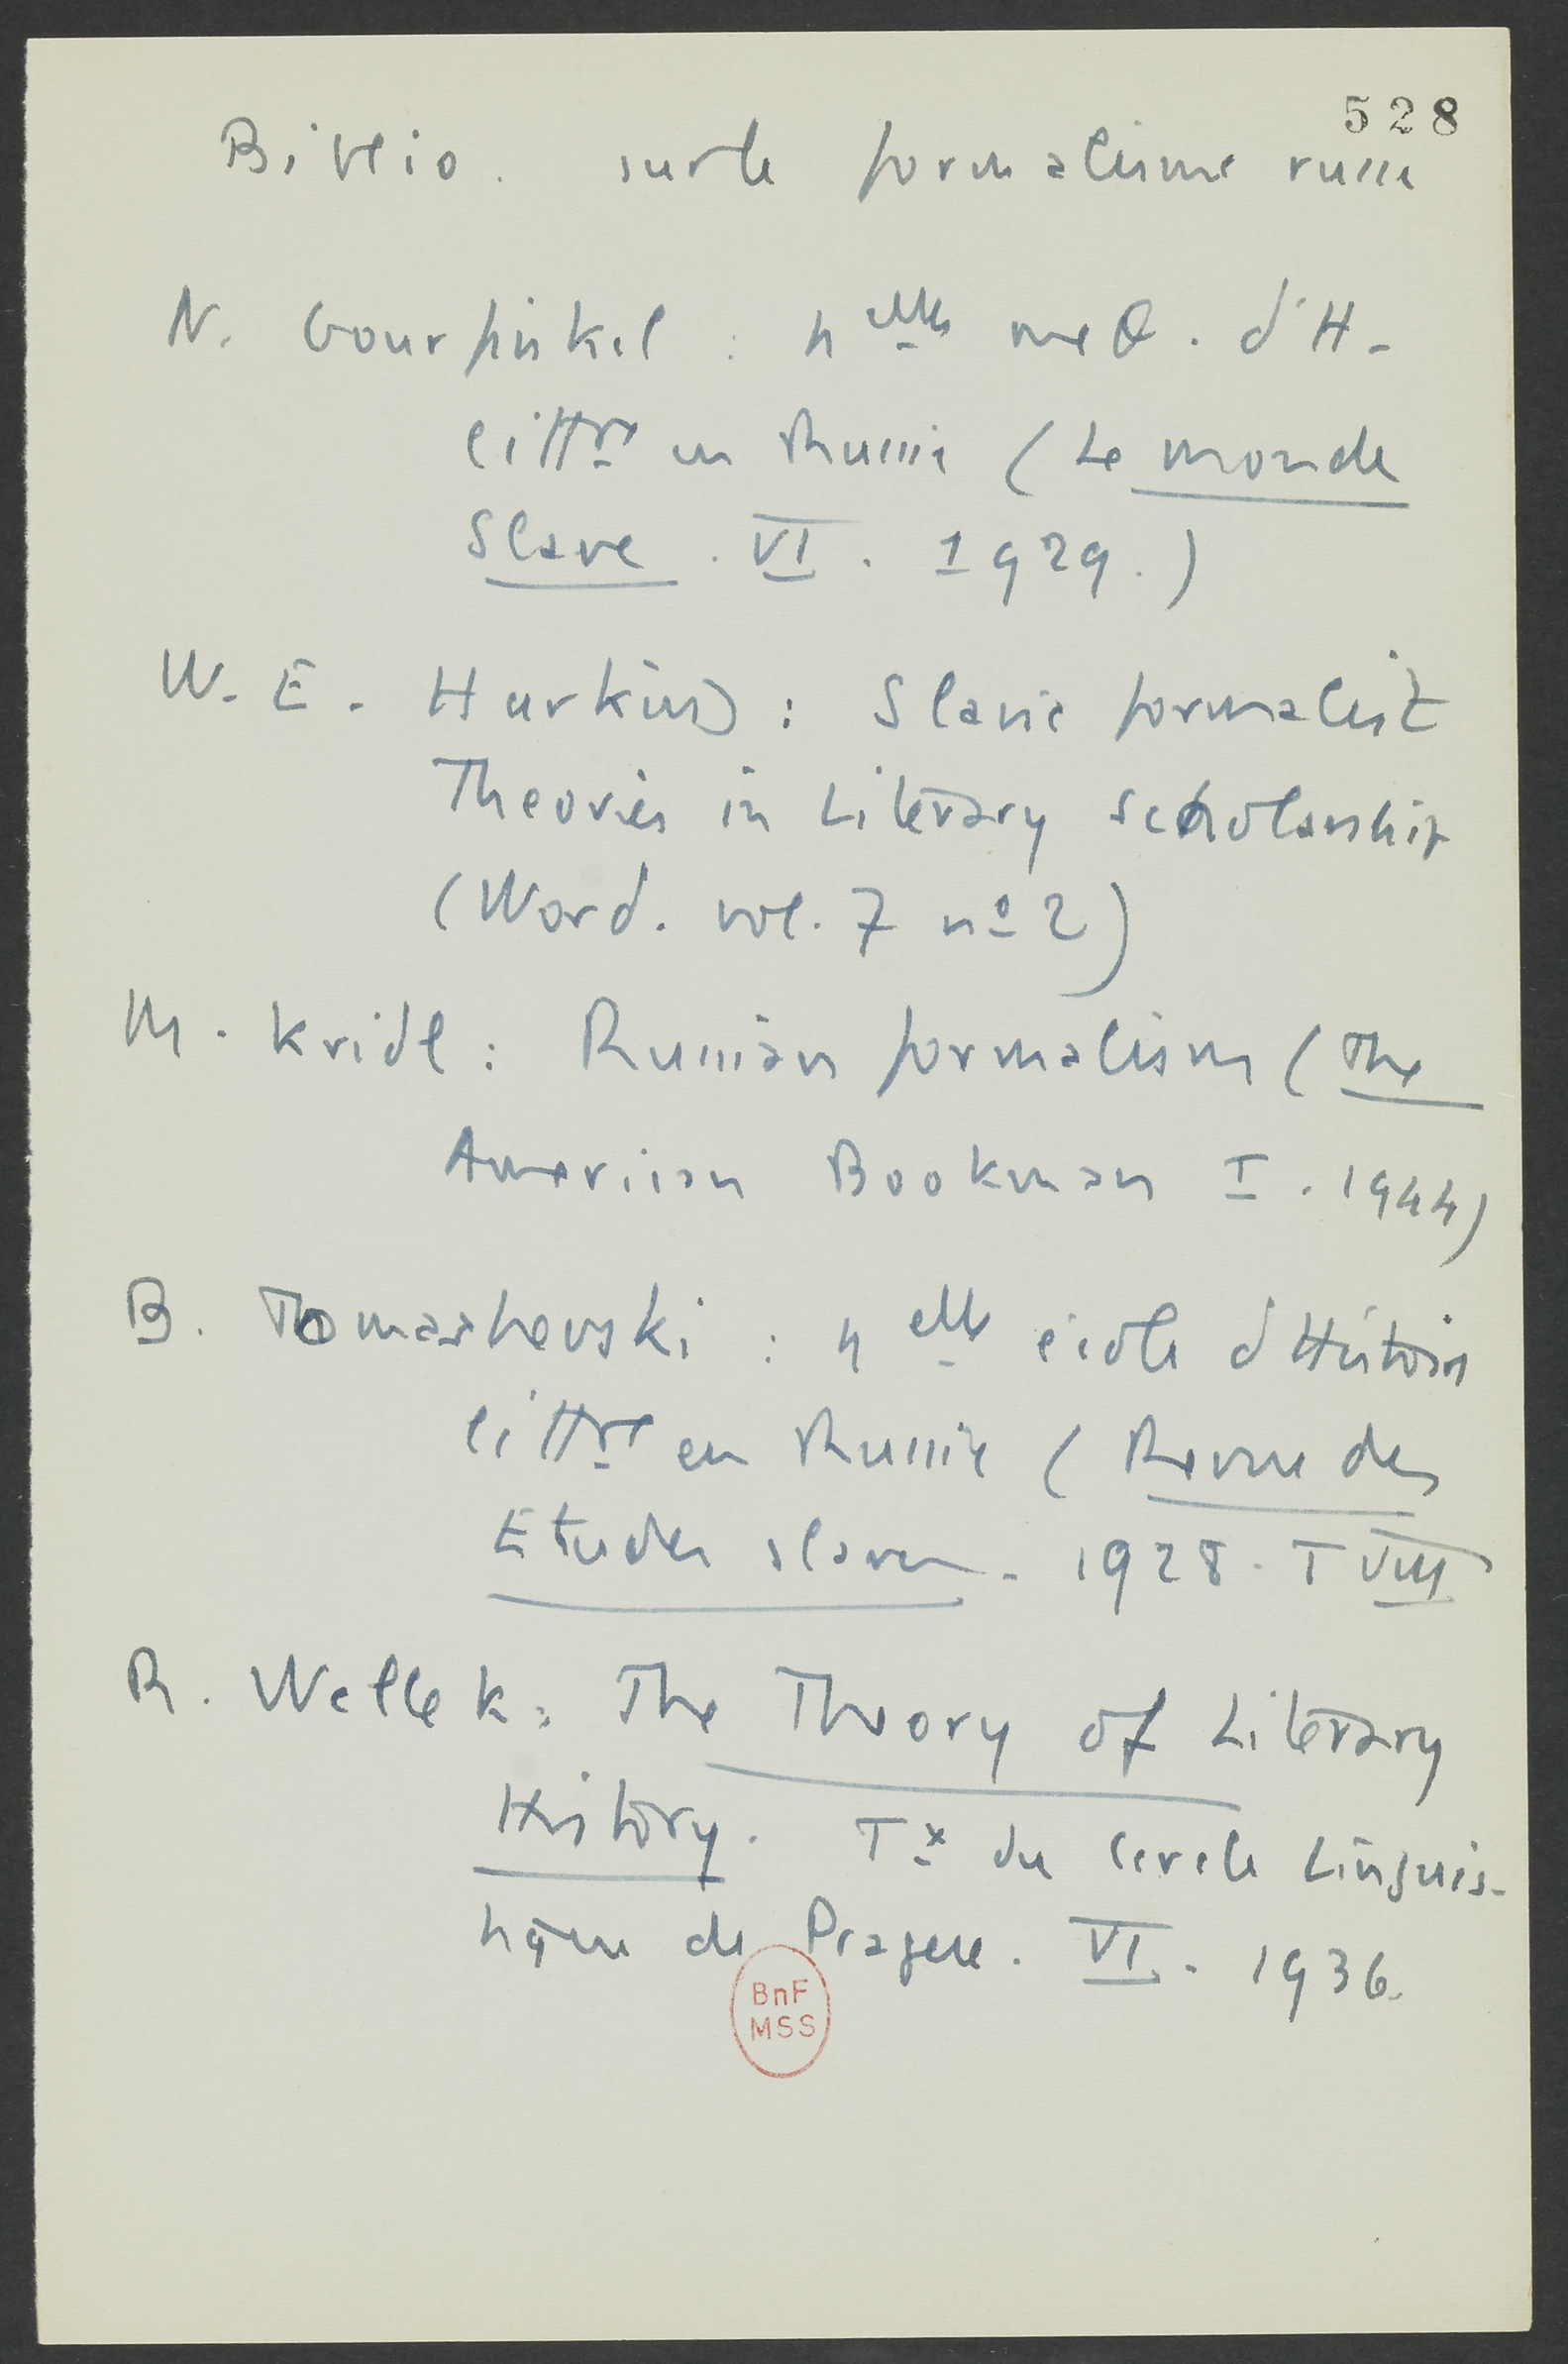 528
Biblio. sur le formalisme russe
N. Gourfinkel : nelles méth. d'H.
littre en Russie (Le Monde
Slave. VI. 1929.)
W. E. Harkins : Slavic formalist
Theories in Literary Scholarship
(Word. vol. 7 nº 2)
M. Kridl : Russian formalism (The
American Bookman I. 1944)
B. Tomashevski : nelle école d'Histoire
littre en Russie (Revue des
Etudes slaves. 1928. T VIII
R. Wellek : The Theory of Literary
History. Tx du Cercle Linguis-
tique de Prague. VI. 1936.
BnF
MSS